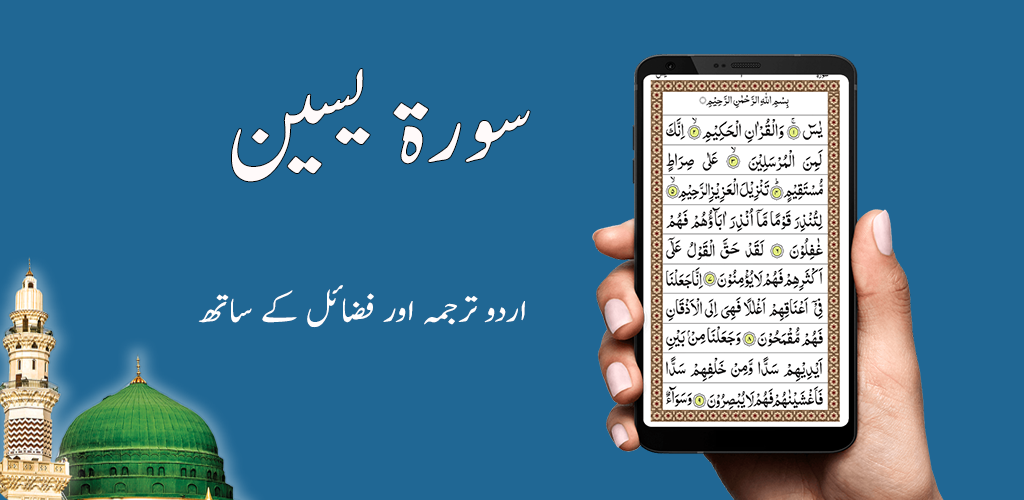 سورۃ یسین
اردو ترجمہ اور فضائل کے ساتھ
بِسْمِ اللّٰهِ الرَّحْمٰنِ الرَّحِيْمِ
يٰسٓ ۚ ۱ وَالْقُرْاٰنِ الْحَكِيْمِ ۙ ۲ اِنَّكَ
لَمِنَ الْمُرْسَلِيْنَ ۙ ۳ عَلٰى صِرَاطٍ
مُّسْتَقِيْمٍ ؕ ۴ تَنْزِيْلَ الْعَزِيْزِ الرَّحِيْمِ ۙ ۵
لِتُنْذِرَ قَوْمًا مَّاۤ اُنْذِرَ اٰبَآؤُهُمْ فَهُمْ
غٰفِلُوْنَ ۶ لَقَدْ حَقَّ الْقَوْلُ عَلٰۤى
اَكْثَرِهِمْ فَهُمْ لَا يُؤْمِنُوْنَ ۷ اِنَّا جَعَلْنَا
فِىْۤ اَعْنَاقِهِمْ اَغْلٰلًا فَهِىَ اِلَى الْاَذْقَانِ
فَهُمْ مُّقْمَحُوْنَ ۸ وَجَعَلْنَا مِنْۢ بَيْنِ
اَيْدِيْهِمْ سَدًّا وَّمِنْ خَلْفِهِمْ سَدًّا
فَاَغْشَيْنٰهُمْ فَهُمْ لَا يُبْصِرُوْنَ ۹ وَسَوَآءٌ